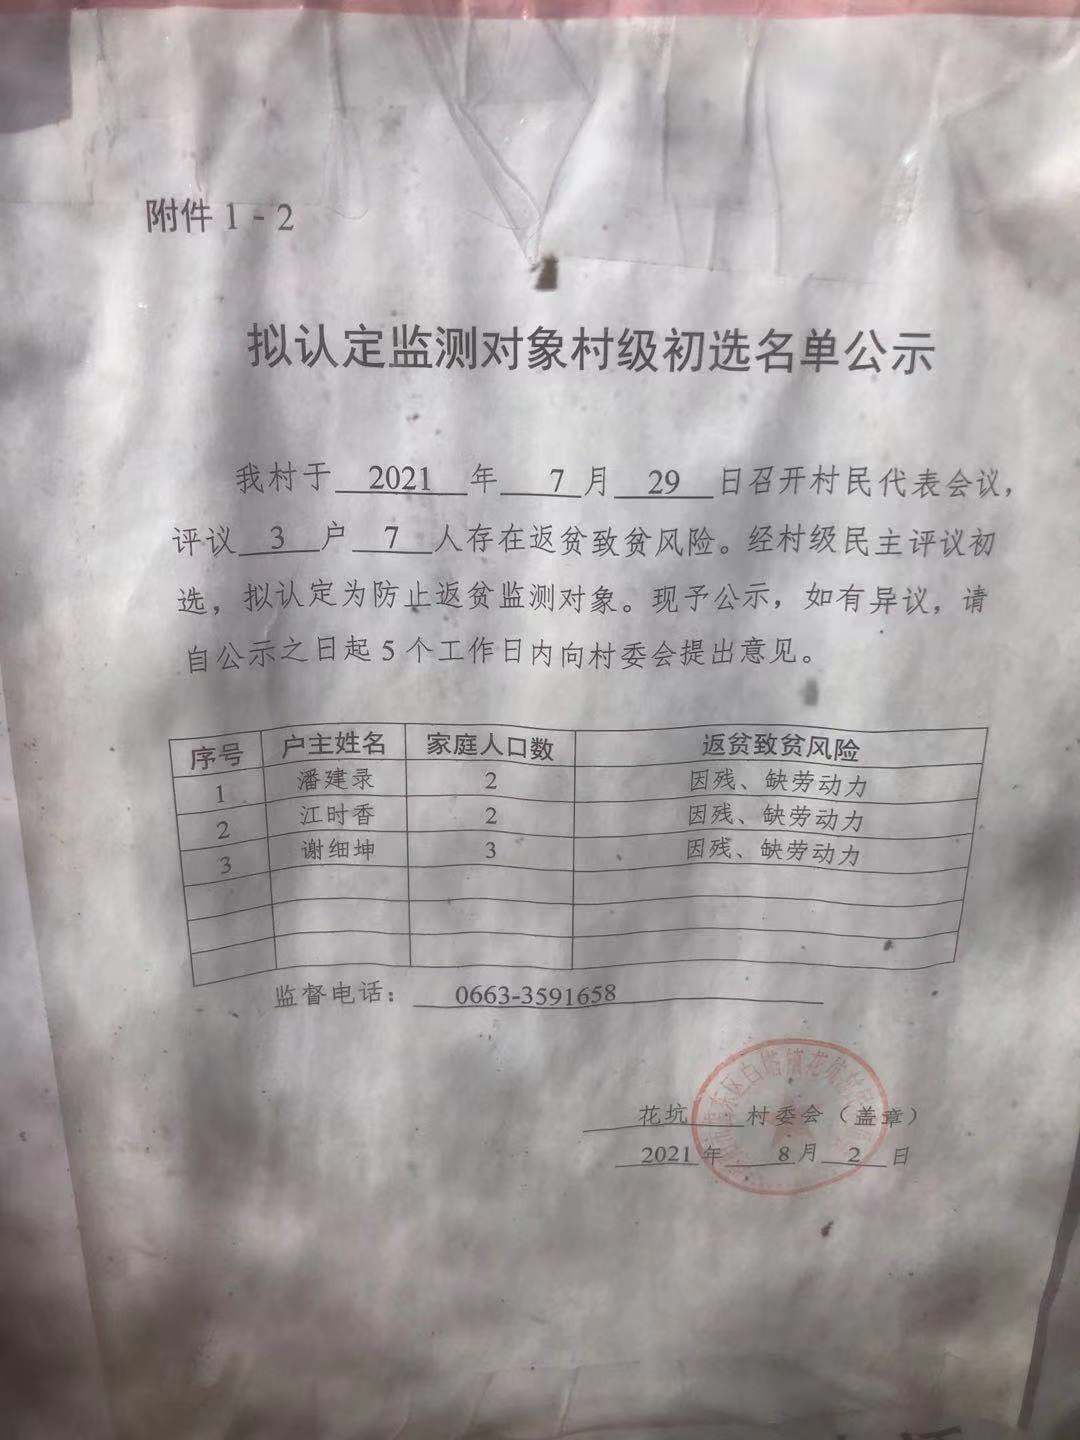 附件1-2
拟认定监测对象村级初选名单公示
我村于 2021 年 7 月 29 日召开村民代表会议，
评议 3 户 7 人存在返贫致贫风险。经村级民主评议初
选，拟认定为防止返贫监测对象。现予公示，如有异议，请
自公示之日起5个工作日内向村委会提出意见。
序号 户主姓名 家庭人口数 返贫致贫风险
1 潘建录 2 因残、缺劳动力
2 江时香 2 因残、缺劳动力
3 谢细坤 3 因残、缺劳动力
监督电话： 0663-3591658
东区白塔镇花坑村
花坑 村委会（盖章）
2021 年 8 月 2 日